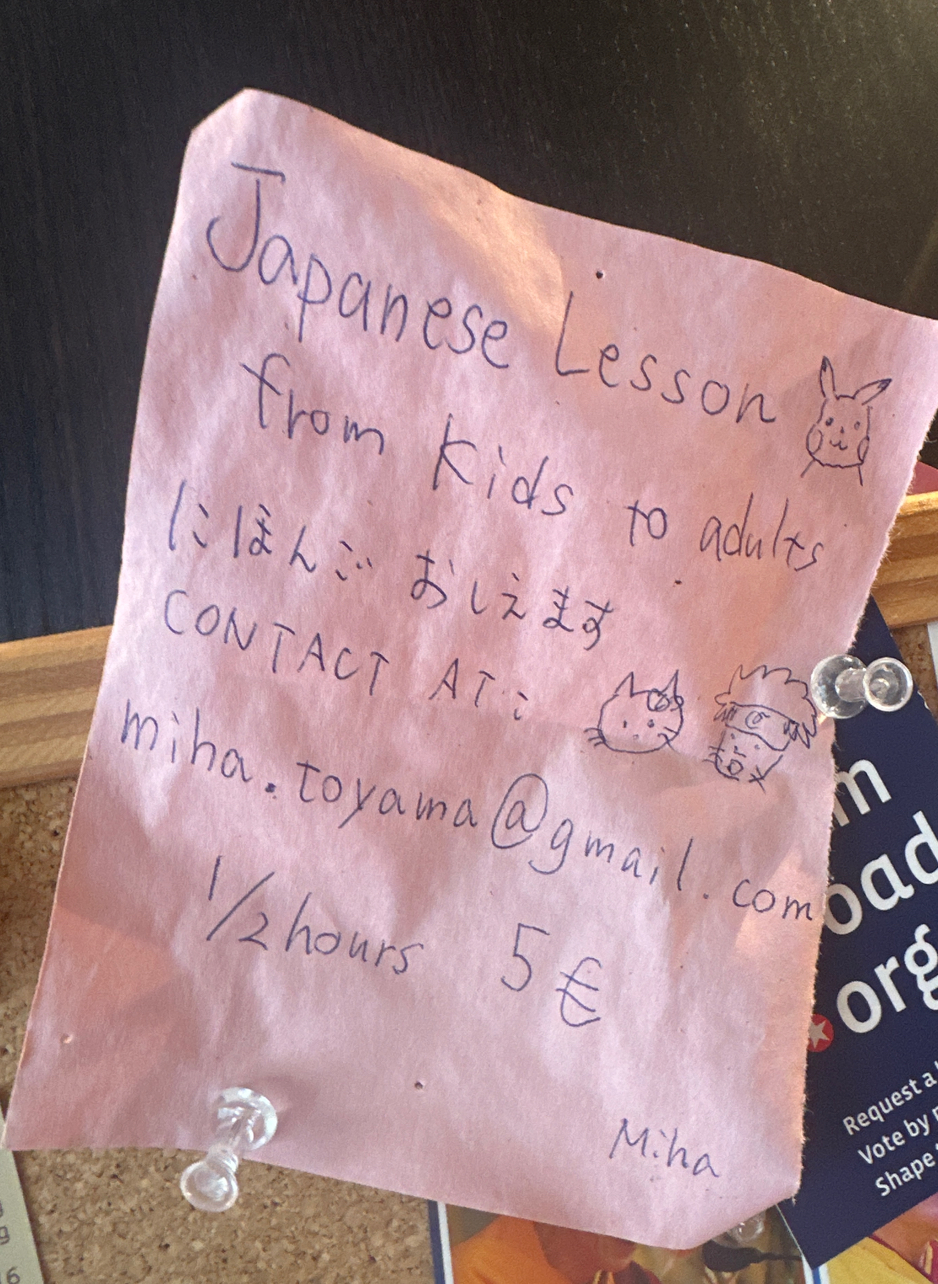 Japanese Lesson
from Kids to adults
にほんご おしえます
CONTACT AT:
miha.toyama@gmail.com
1/2 hours 5€
Miha
.org
Request a
Vote by
Shape